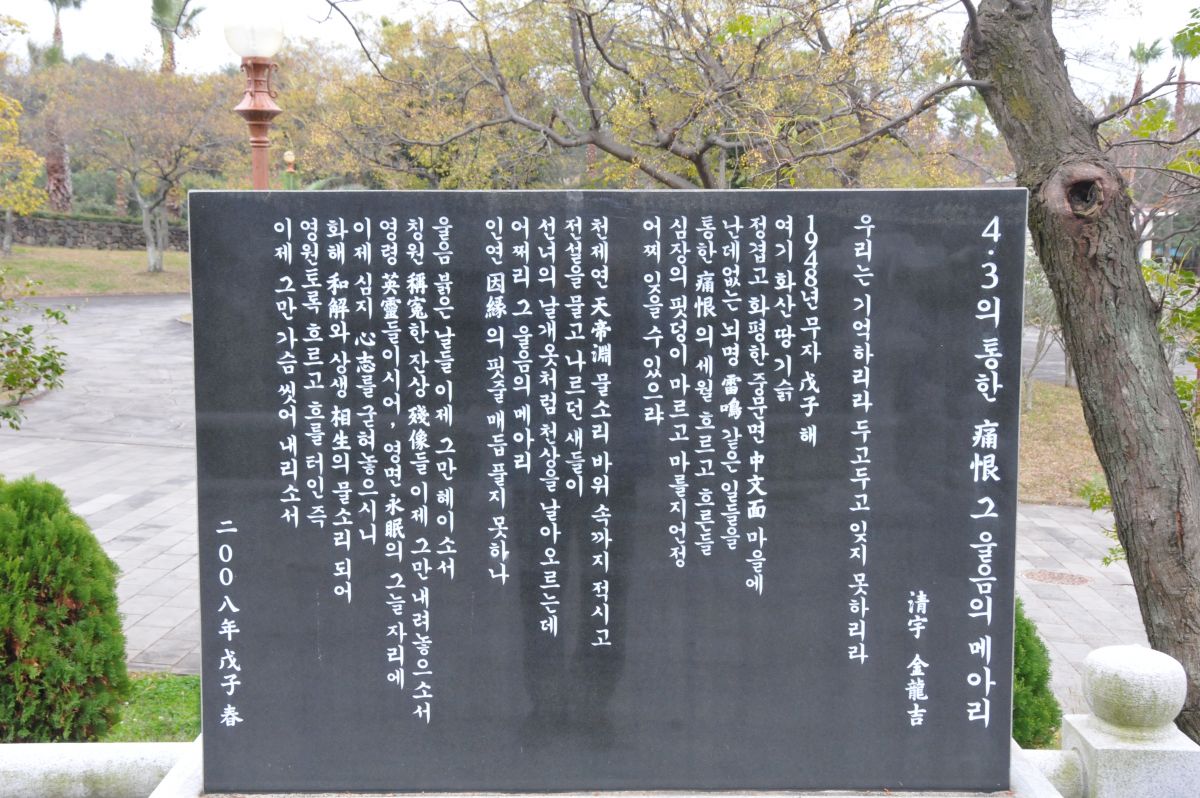 4·3의 통한 痛恨 그 울음의 메아리
清宇 金龍吉
우리는 기억하리라 두고두고 잊지 못하리라
1948년 무자 戊子 해
여기 화산 땅 기슭
정겹고 화평한 중문면 中文面 마을에
난데없는 뇌명 雷鳴 같은 일들을
통한 痛恨의 세월 흐르고 흐른들
심장의 핏덩이 마르고 마를지언정
어찌 잊을 수 있으랴
천제연 天帝淵 물소리 바위 속까지 적시고
전설을 물고 나르던 새들이
선녀의 날개옷처럼 천상을 날아오르는데
어쩌리 그 울음의 메아리
인연 因緣의 핏줄 매듭 풀지 못하나
울음 붉은 날들 이제 그만 헤이소서
칭원 稱寃한 잔상 殘像들 이제 그만 내려놓으소서
영령 英靈들이시어, 영면 永眠의 그늘 자리에
이제 심지 心志를 굳혀놓으시니
화해 和解와 상생 相生의 물소리 되어
영원토록 흐르고 흐를 터인즉
이제 그만 가슴 씻어 내리소서
二00八年 戊子 春